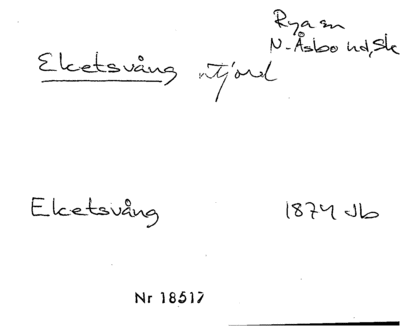 Rya sn
N-Åsbo hd, Sk
Eketsvång utjord
Eketsvång 1874 Jb
Nr 18517